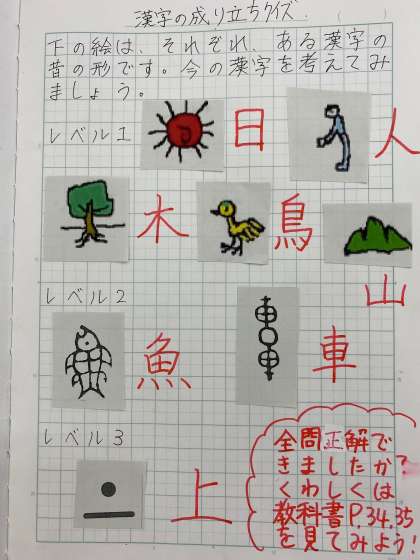 漢字の成り立ちクイズ
下の絵は、それぞれ、ある漢字の
昔の形です。今の漢字を考えてみ
ましょう。
レベル1
日
人
木
鳥
山
レベル2
魚
車
レベル3
上
全問正解で
きましたか?
くわしくは
教科書P.34.35
を見てみよう。